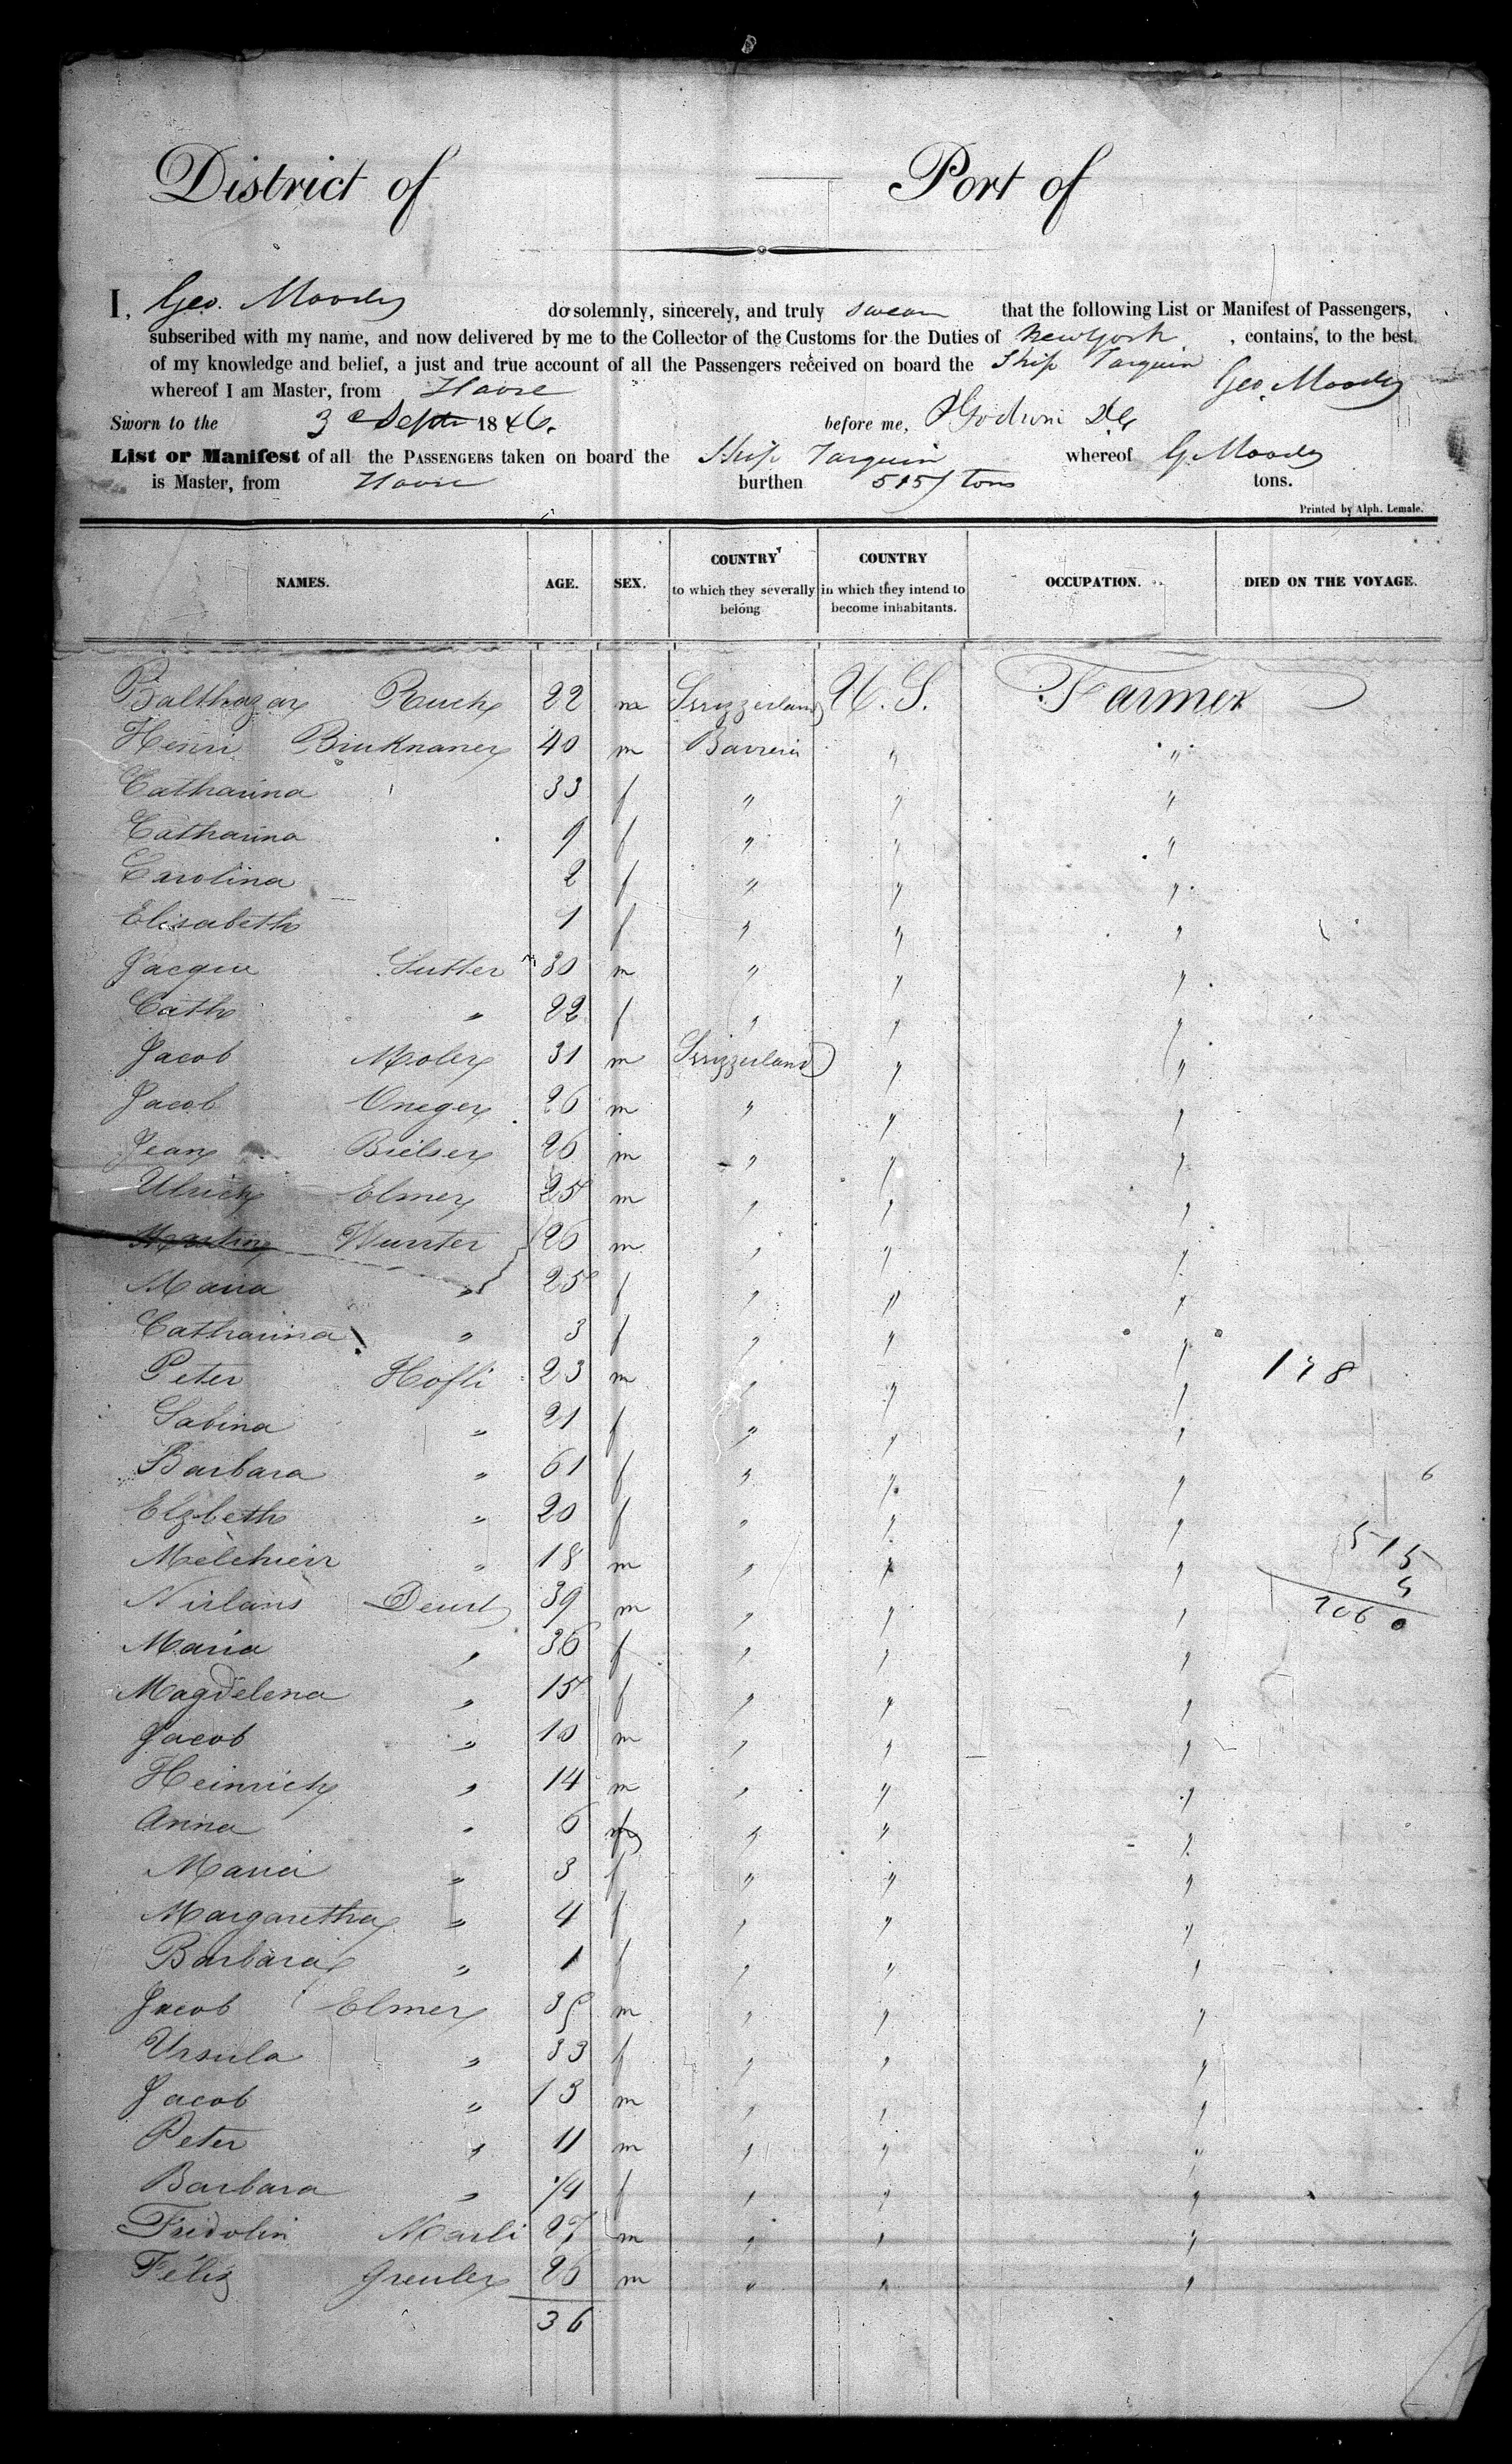 District of Port of
I, Geo. Moody do solemnly, sincerely, and truly swear that the following List or Manifest of Passengers,
subscribed with my name, and now delivered by me to the Collector of the Customs for the Duties of New York , contains, to the best
of my knowledge and belief, a just and true account of all the Passengers received on board the Ship Tarquin
whereof I am Master, from Havre Geo. Moody
Sworn to the 3 Sept 1846. before me,
List or Manifest of all the PASSENGERS taken on board the Ship Tarquin whereof G. Moody
is Master, from Havre burthen 515/ tons tons.
Printed by Alph. Lemale.
NAMES. AGE. SEX. COUNTRY to which they severally belong COUNTRY in which they intend to become inhabitants. OCCUPATION. DIED ON THE VOYAGE.
Balthazar Ruch 22 m Swizzerland U.S. Farmer
Henri 40 m Bavveria " "
Catharina 33 f " " "
Catharina 9 f " " "
Carolina 2 f " " "
Elisabeth 1 f " " "
Jacque Sutter 30 m " " "
Cath " 22 f " " "
Jacob Moler 31 m Swizzerland " "
Jacob 26 m " " "
Jean Bielser 26 m " " "
Ulrich Elmer 25 m " " "
Martin Wurster 26 m " " "
Maria " 25 f " " "
Catharina " 3 f " " "
Peter Hofli 23 m " " " 178
Sabina " 21 f " " "
Barbara " 61 f " " " 6
Elzbeth " 20 f " " "
Melchier " 18 m " " " 515
Deurl 39 m " " " 5
Maria " 36 f " " "
Magdelena " 15 f " " "
Jacob " 10 m " " "
Heinrich " 14 m " " "
Anna " 6 f " " "
Maria " 3 f " " "
Margaretha " 4 f " " "
Barbara " 1 f " " "
Jacob Elmer 35 m " " "
Ursula " 33 f " " "
Jacob " 13 m " " "
Peter " 11 m " " "
Barbara " 1/4 f " " "
Fridolin Marli 27 m " " "
Félix Greuler 26 m " " "
36